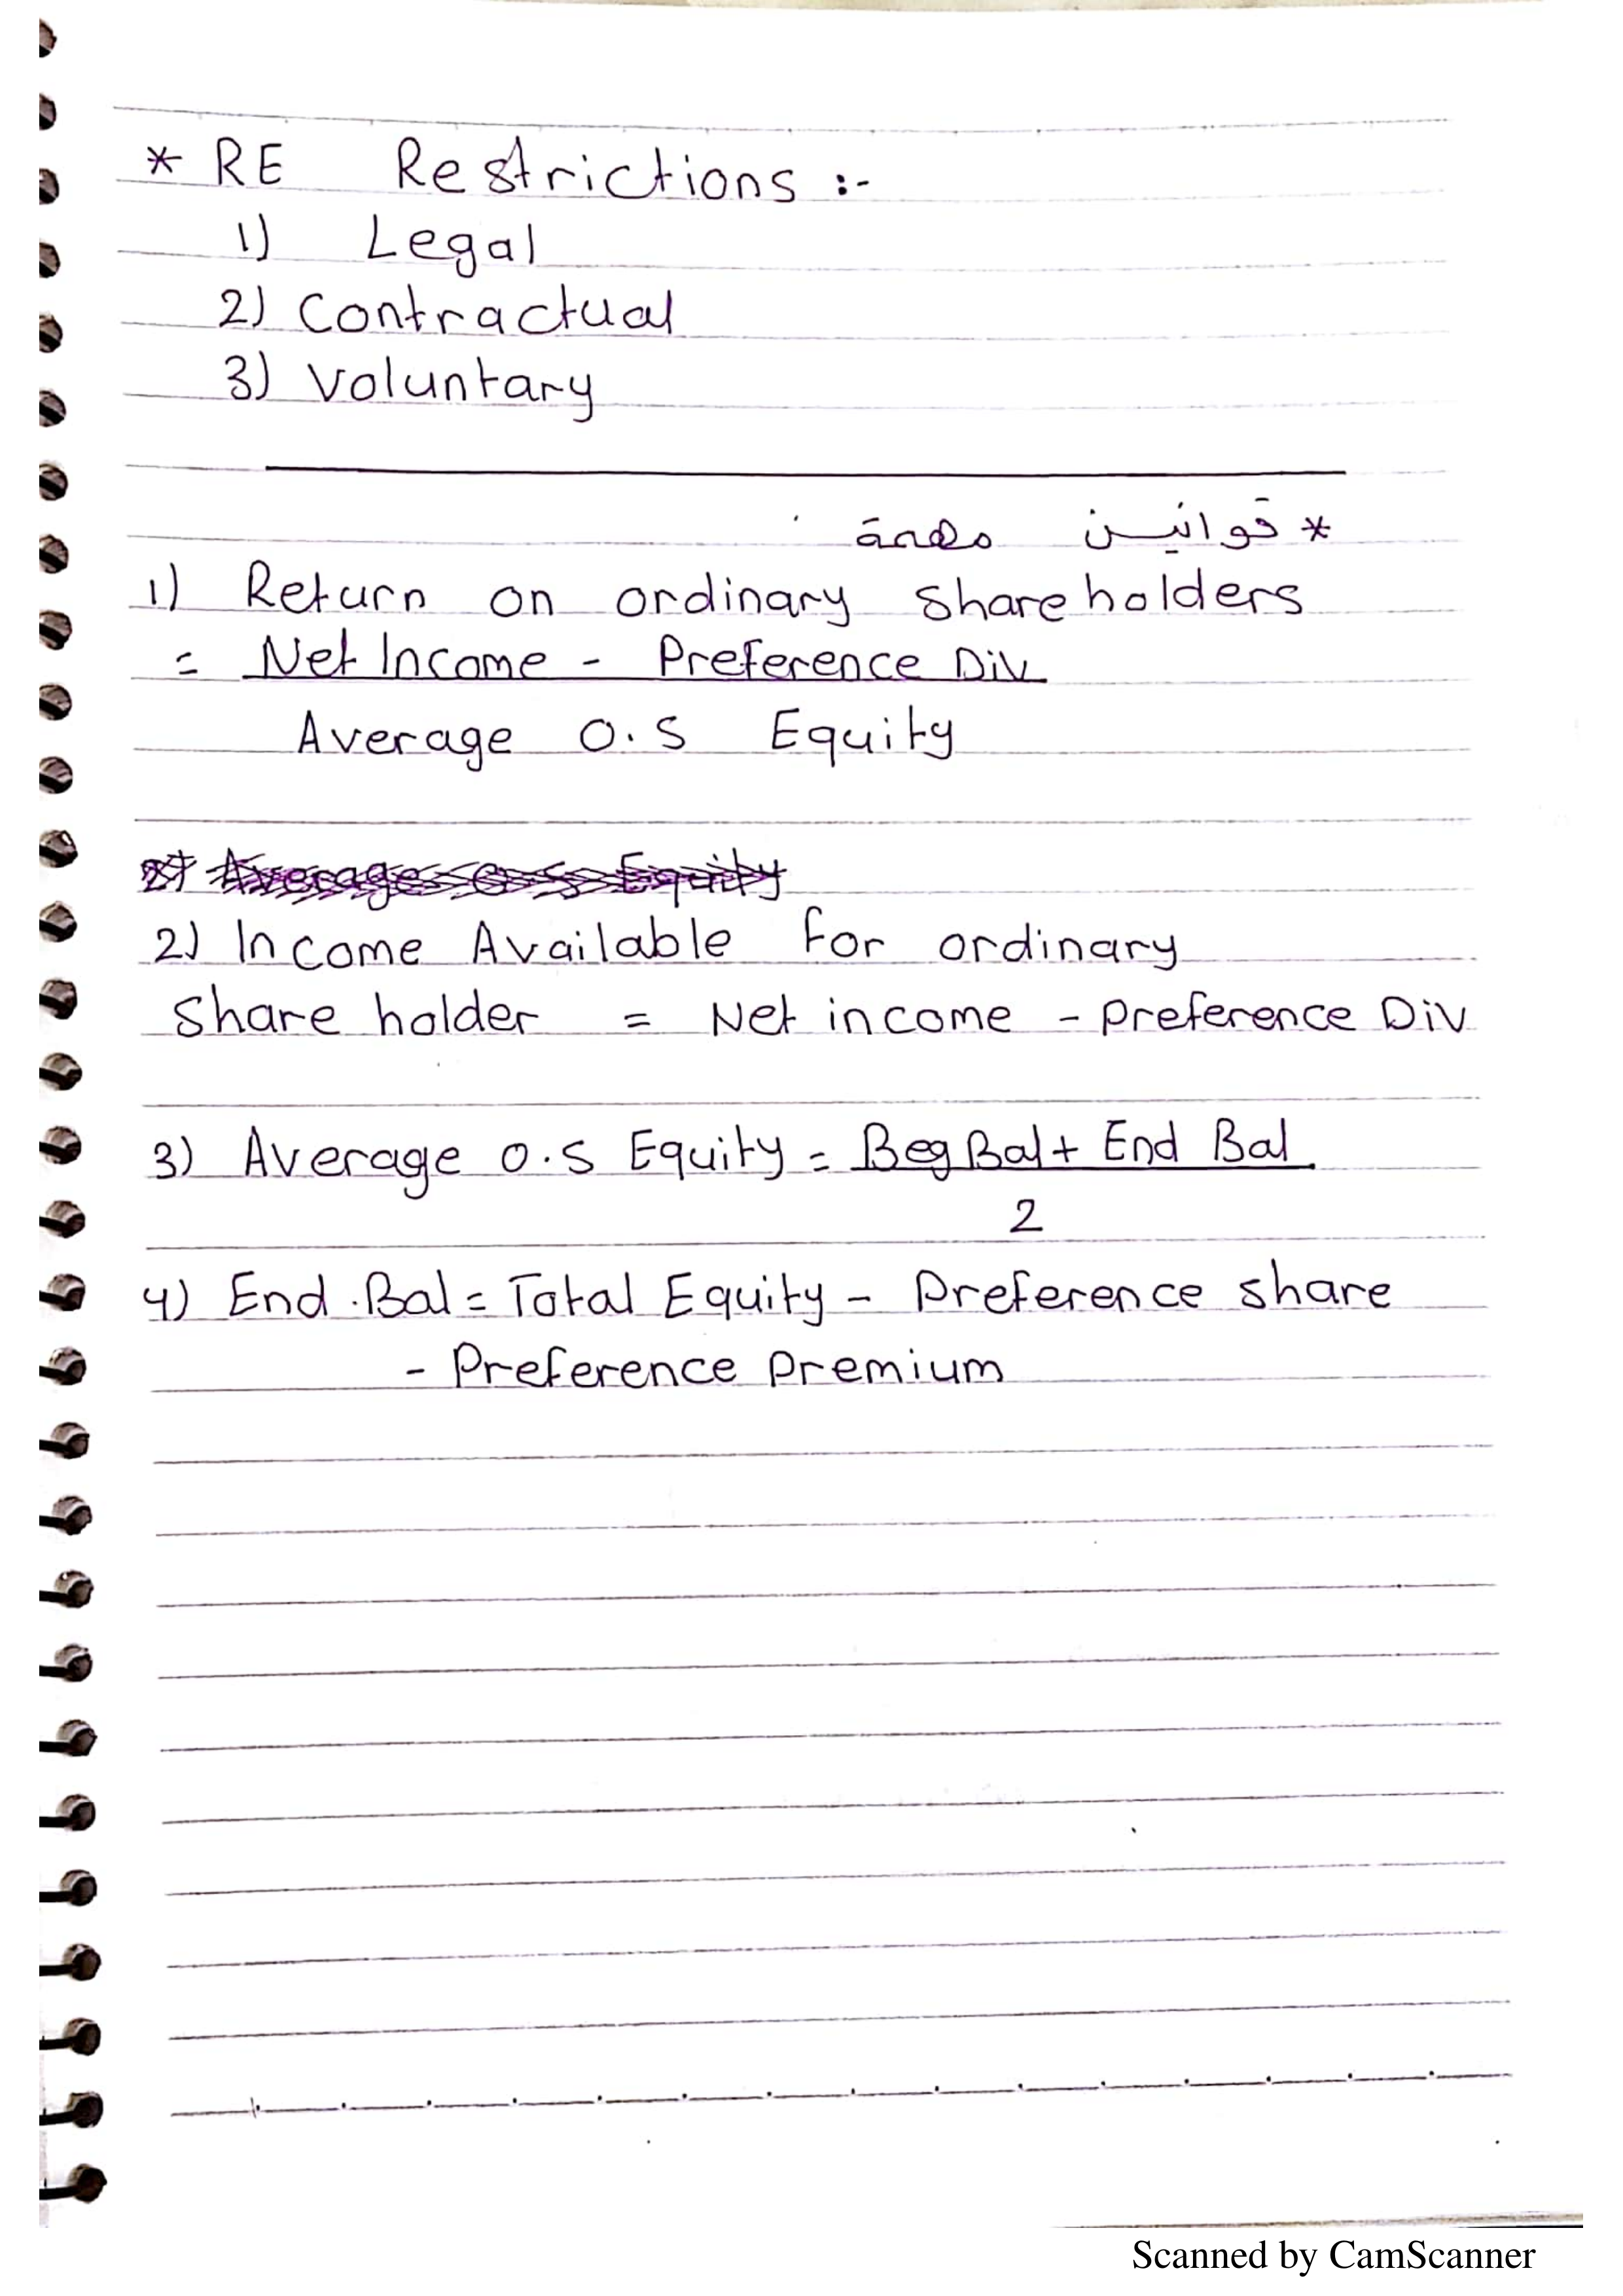 * RE Restrictions :-
1) Legal
2) Contractual
3) Voluntary
* قوانين مهمة
1) Return on ordinary shareholders
= Net Income - Preference Div
Average O.S Equity
2) Average O.S Equity
2) Income Available For ordinary
Share holder = Net income - Preference Div
3) Average O.S Equity = Beg Bal + End Bal
2
4) End.Bal = Total Equity - Preference share
- Preference Premium
Scanned by CamScanner